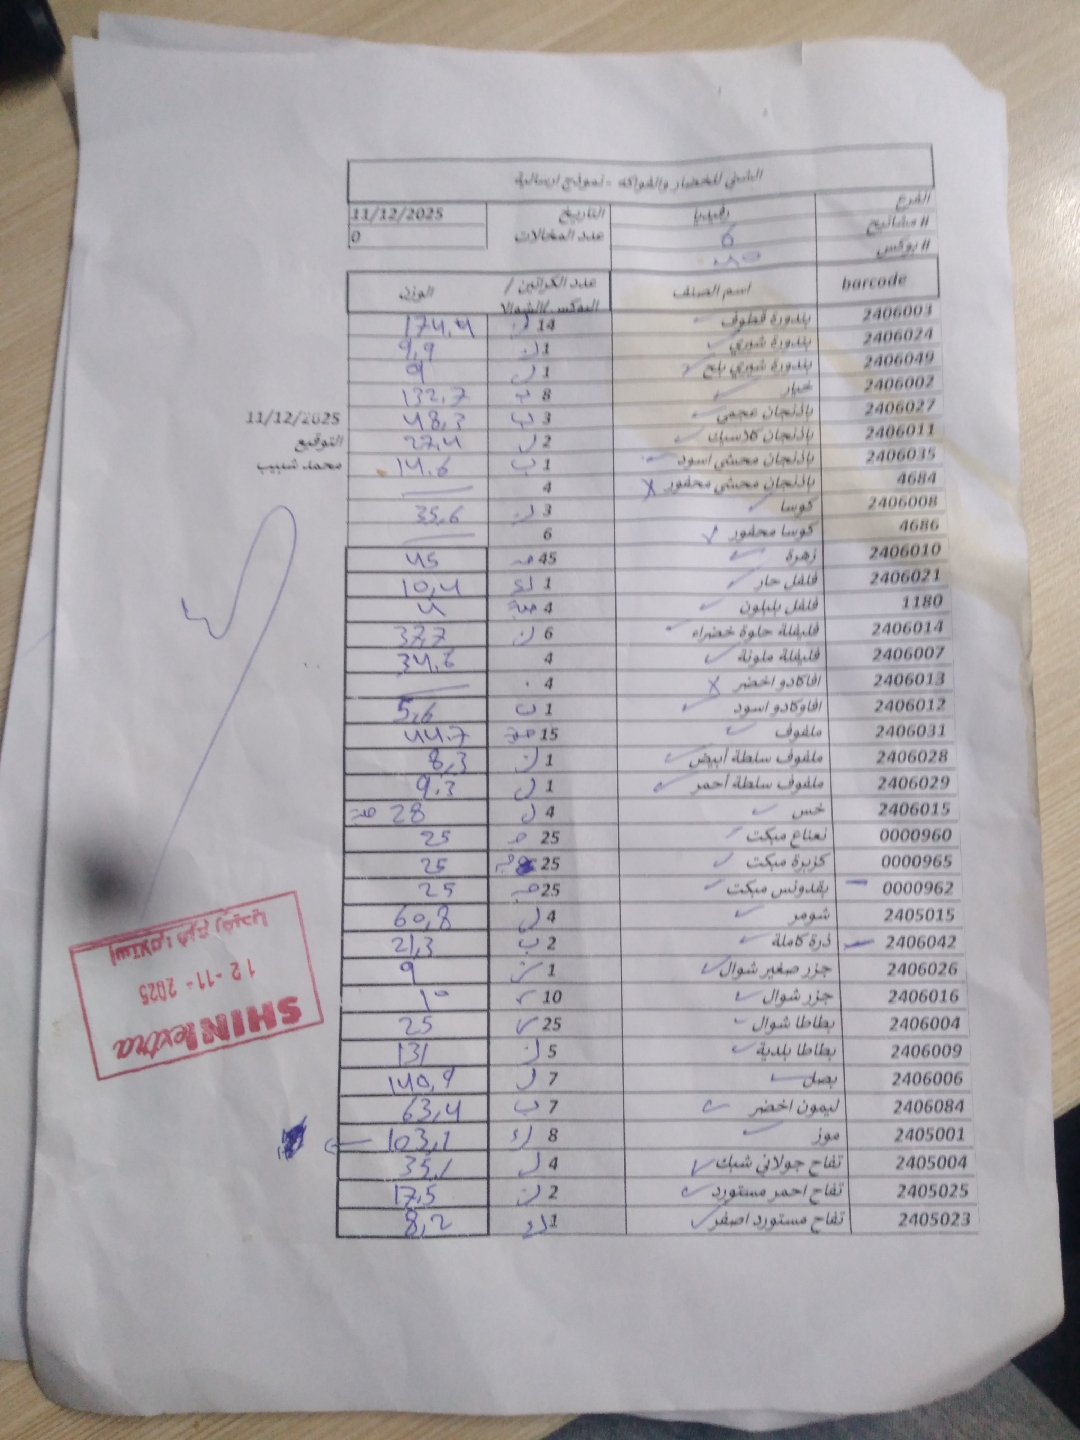 الشني للخضار والفواكة - نموذج ارسالية
الفرع رفيديا التاريخ 11/12/2025
# مشاتيح 6 عدد المخالات 0
# بوكس
barcode اسم الصنف عدد الكراتين / البوكس/الشوالات الوزن
2406003 بندورة قطوف 14 174,4
2406024 بندورة شوري 1 9,9
2406049 بندورة شوري بلح 1 9
2406002 خيار 8 ب 132,7
2406027 باذنجان عجمي 3 ب 48,3
2406011 باذنجان كلاسيك 2 27,4
2406035 باذنجان محشي اسود 1 ب 14,6
4684 باذنجان محشي محفور x 4
2406008 كوسا 3 35,6
4686 كوسا محفور 6
2406010 زهرة 45 45
2406021 فلفل حار 1 10,4
1180 فلفل بلبلون 4 4
2406014 فليفلة حلوة خضراء 6 37,7
2406007 فليفلة ملونة 4 34,6
2406013 افاكادو اخضر x 4
2406012 افاوكادو اسود 1 ب 5,6
2406031 ملفوف 15 44,7
2406028 ملفوف سلطة أبيض 1 8,3
2406029 ملفوف سلطة أحمر 1 9,3
2406015 خس 4 28
0000960 نعناع مبكت 25 25
0000965 كزبرة مبكت 25 25
0000962 بقدونس مبكت 25 25
2405015 شومر 4 60,8
2406042 ذرة كاملة 2 ب 21,3
2406026 جزر صغير شوال 1 9
2406016 جزر شوال 10 10
2406004 بطاطا شوال 25 25
2406009 بطاطا بلدية 5 131
2406006 بصل 7 140,9
2406084 ليمون اخضر 7 ب 63,4
2405001 موز 8 103,1
2405004 تفاح جولاني شبك 4 35,1
2405025 تفاح احمر مستورد 2 17,5
2405023 تفاح مستورد اصفر 1 8,2
11/12/2025
التوقيع
محمد شبيب
SHINI extra
12-11-2025
استلام: فرع رفيديا